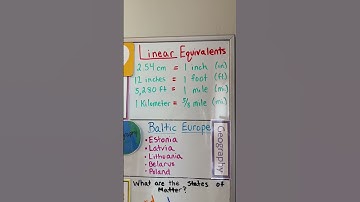 Linear Equivalents
2.54 cm = 1 inch (in)
12 inches = 1 foot (ft)
5,280 ft = 1 mile (mi)
1 Kilometer = 5/8 mile (mi)
Baltic Europe
• Estonia
• Latvia
• Lithuania
• Belarus
• Poland
Geography
What are the States of
Matter?